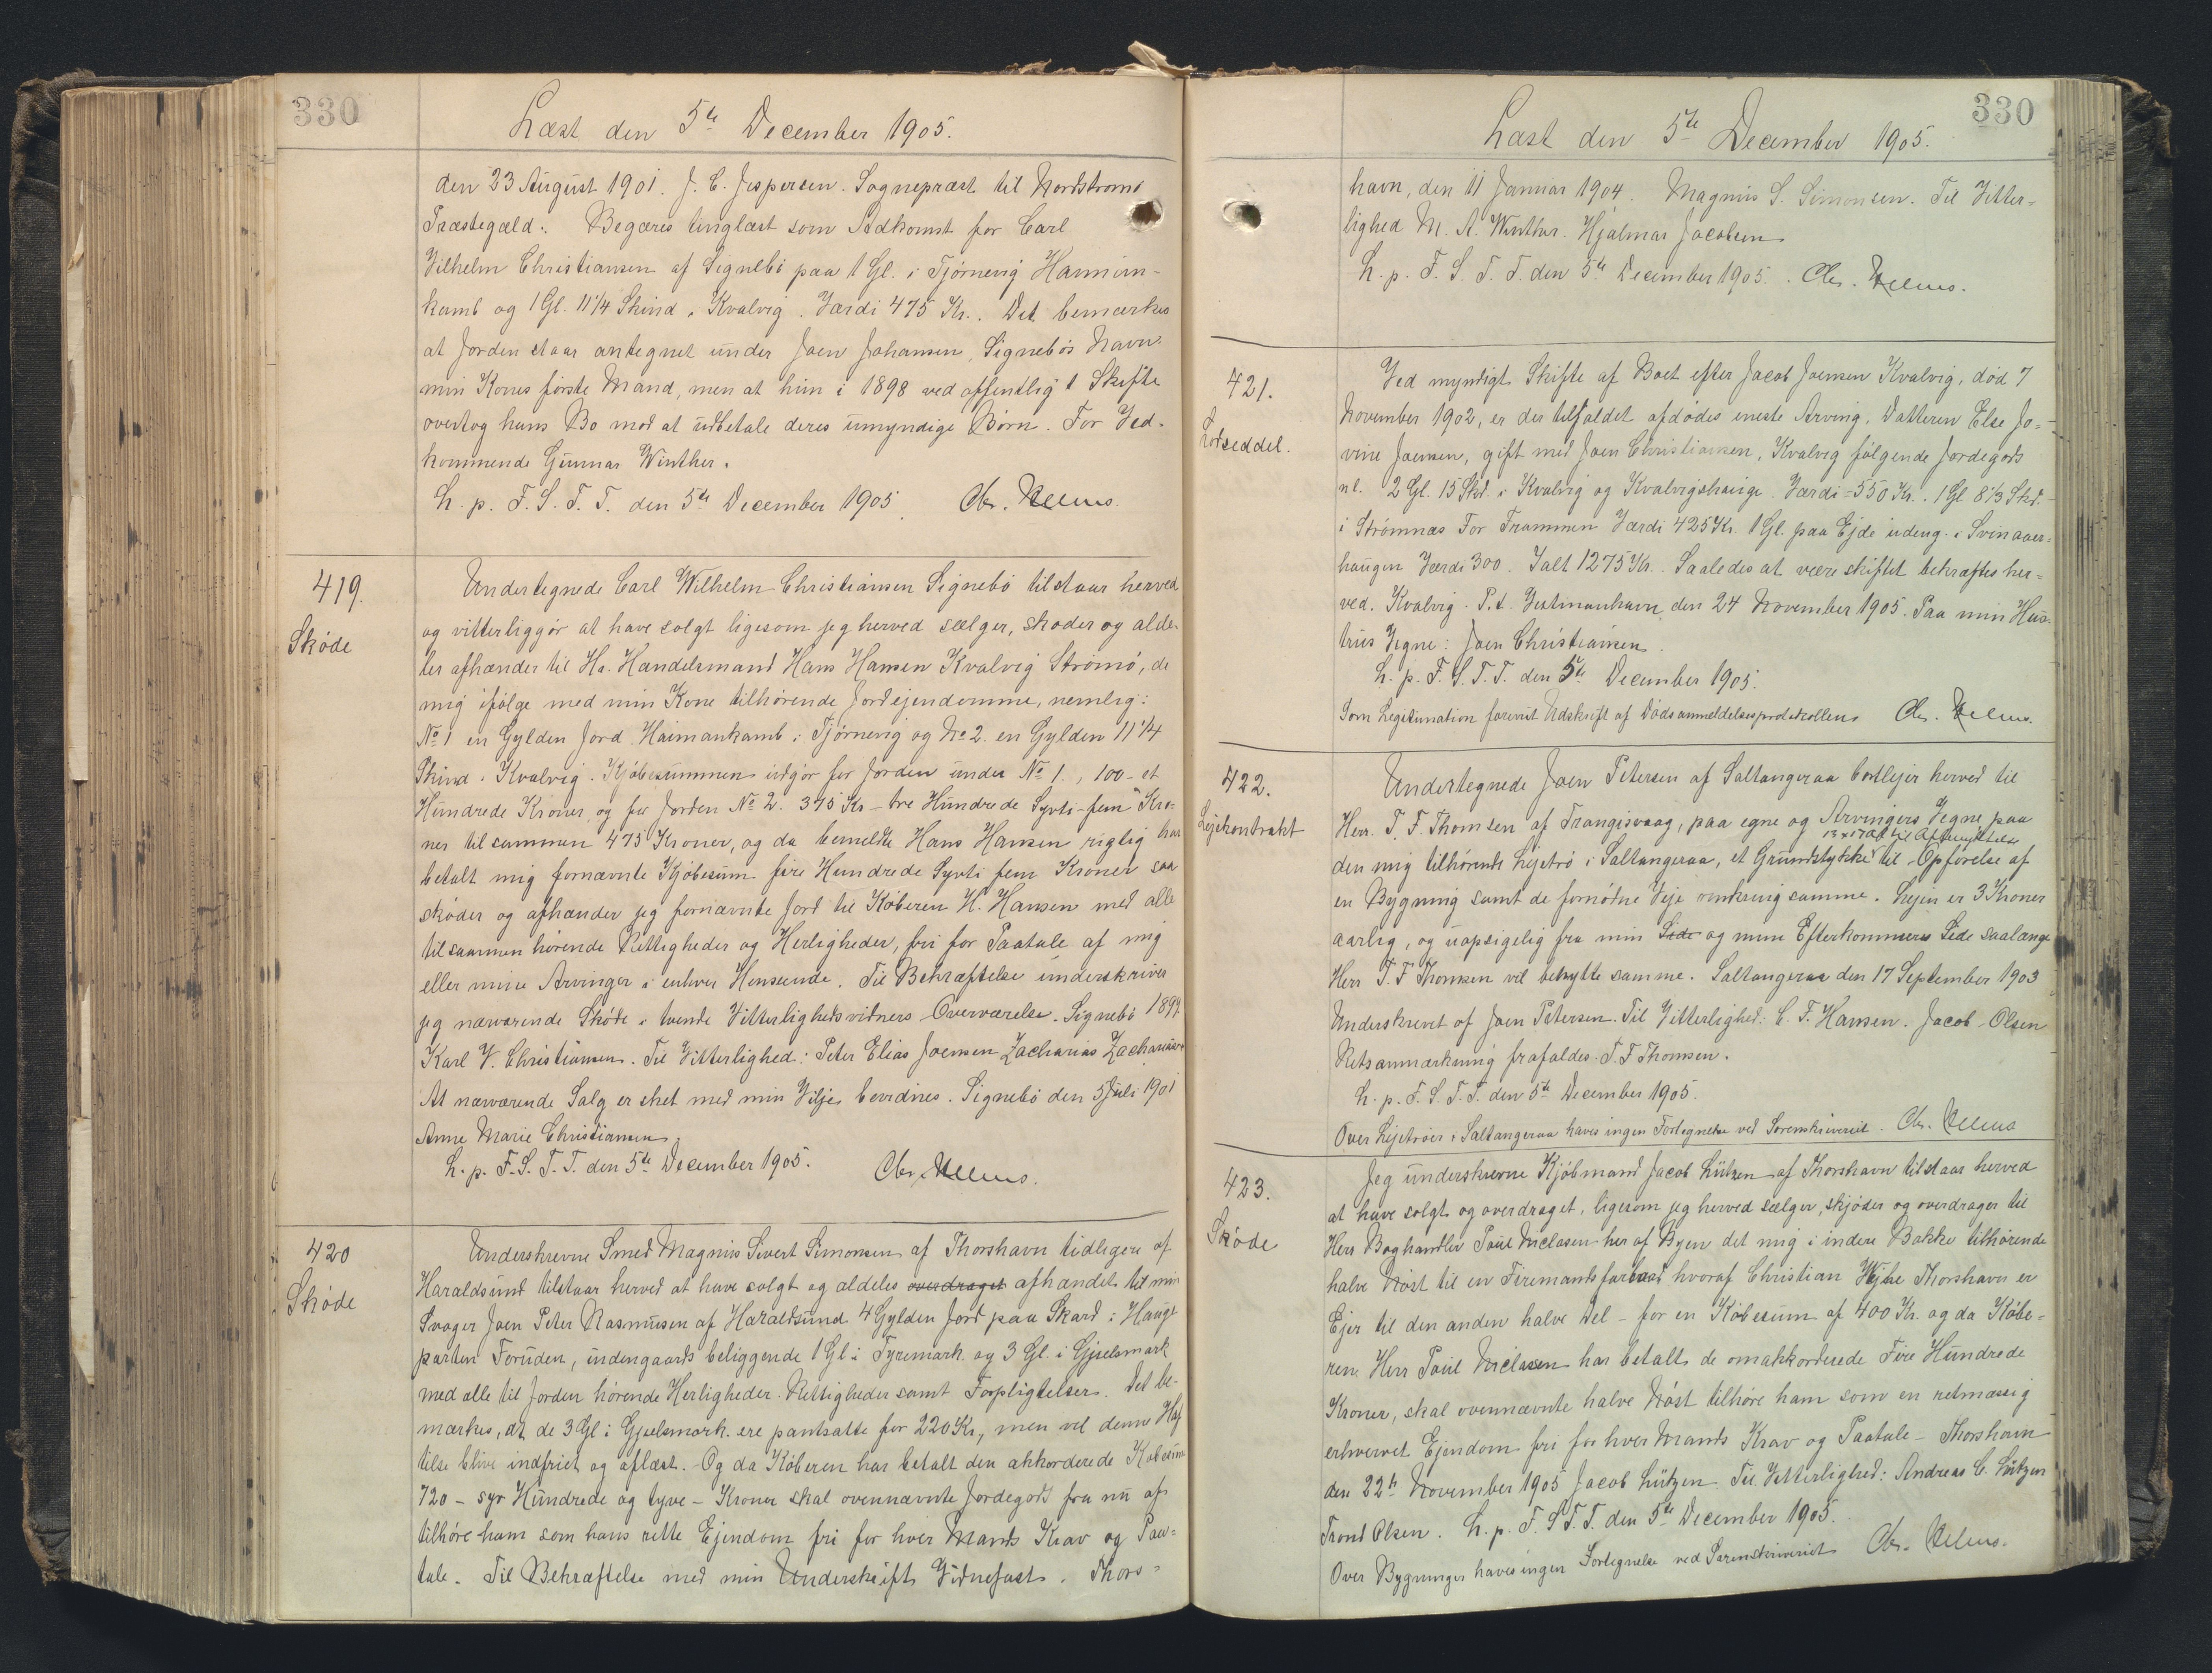 330
Læst den 5te December 1905.
den 23 August 1901. J. C. Jespersen. Sognepræst til Nordstrømø
Præstegæld. Begæres tinglæst som Adkomst for Carl
Vilhelm Christiansen af Signebö paa 1 Gl. i Tjørnevig
kamb og 1 Gl. 11 1/4 Skind i Kvalvig. Værdi 475 Kr. Det bemærkes
at Jorden staar antegnet under Joen Johansen, Signebös Navn
min Kones første Mand, men at hun i 1898 ved offentligt Skifte
overtog hans Bo mod at udbetale deres umyndige Börn. For Ved-
kommende Gunnar Winther.
L. p. F. S. T. T. den 5te December 1905
419.
Sköde
Undertegnede Carl Wilhelm Christiansen Signebö tilstaar herved
og vitterliggör at have solgt ligesom jeg herved sælger, skøder og alde-
les afhænder til Hr. Handelsmand Hans Hansen Kvalvig Strömö, de
mig ifølge med min Kone tilhörende Jordejendomme, nemlig:
No 1 en Gylden Jord Haimankamb i Tjörnevig og No 2. en Gylden 11 1/4
Skind i Kvalvig. Kjöbesummen udgör for Jorden under No 1., 100 - et
Hundrede Kroner, og for Jorden No 2. 375 Kr - tre Hundrede Syvti-fem Kro-
ner tilsammen 475 Kroner, og da bemeldte Hans Hansen rigtig har
betalt mig fornævnte Kjöbesum fire Hundrede Syvti fem Kroner saa
sköder og afhænder jeg fornævnte Jord til Köberen H. Hansen med alle
tilsammen hörende Rettigheder og Herligheder, fri for Paatale af mig
eller mine Arvinger i enhver Henseende. Til Bekræftelse underskriver
jeg nærværende Sköde i tvende Vitterlighedsvidners Overværelse. Signebö 1899.
Karl V. Christiansen. Til Vitterlighed: Peter Elias Joensen Zacharias Zachariasen
At nærværende Salg er sket med min Vilje bevidnes. Signebö den 5 Juli 1901
Anne Marie Christiansen.
L. p. F. S. T. T. den 5te December 1905.
420
Sköde
Underskrevne Smed Magnus Sivert Simonsen af Thorshavn tidligere af
Haraldsund tilstaar herved at have solgt og aldeles overdraget afhændet til min
Svoger Joen Peter Rasmussen af Haraldsund 4 Gylden Jord paa Skard i Hauge
parten Foruden, indengaards beliggende 1 Gl i Tyremark og 3 Gl. i Gjselsmark
med alle til Jorden hörende Herligheder. Rettigheder samt Forpligtelser. Det be-
mærkes, at de 3 Gl i Gjselsmark ere pantsatte for 220 Kr, men vil denne Hæf
telse blive indfriet og aflæst. Og da Köberen har betalt den akkorderede Købesum
720 - syv Hundrede og tyve - Kroner skal ovennævnte Jordegods fra nu af
tilhöre ham som hans rette Ejendom fri for hver Mands Krav og Paa-
tale. Til Bekræftelse med min Underskrift Vidnefast. Thors-
330
Læst den 5te December 1905.
havn, den 11 Januar 1904. Magnus S. Simonsen. Til Vitter-
lighed M. A. Winther. Hjalmar Jacobsen
L. p. F. S. T. T. den 5te December 1905.
421.
Lodseddel.
Ved myndigt Skifte af Boet efter Jacob Joensen Kvalvig, död 7
November 1902, er der tilfaldet afdödes eneste Arving, Datteren Else Jo-
vine Joensen, gift med Joen Christiansen, Kvalvig fölgende Jordegods
nl. 2 Gl. 15 Skd. i Kvalvig og Kvalvigshauge. Værdi = 550 Kr. 1 Gl 8 1/3 Skd.
i Strömnæs For Frammen Værdi 425 Kr. 1 Gl. paa Ejde udeng. i Svinaaer-
haugen Værdi 300. Ialt 1275 Kr. Saaledes at være skiftet bekræftes her-
ved. Kvalvig. P.t. Vestmanhavn, den 24 November 1905. Paa min Hus-
trus Vegne: Joen Christiansen.
L. p. F. S. T. T. den 5te December 1905.
Som Legitimation forevist Udskrift af Dödsanmeldelsesprotokollen.
422.
Lejekontrakt
Undertegnede Joen Petersen af Saltangeraa bortlejer herved til
Herr. T. F. Thomsen af Trangisvaag, paa egne og Arvingers Vegne paa
13 x 17 Al til Afbenyttelse
den mig tilhörende Lejetrö i Saltangeraa, et Grundstykke til Opförelse af
en Bygning samt de fornödne Veje omkring samme. Lejen er 3 Kroner
aarlig, og uopsigelig fra min Side og mine Efterkommeres Side saalænge
Herr T. F Thomsen vil benytte samme. Saltangeraa den 17 September 1903
Underskrevet af Joen Petersen. Til Vitterlighed: C. F. Hansen. Jacob Olsen
Retsanmærkning frafaldes. T. F Thomsen.
L. p. F. S. T. T. den 5te December 1905.
Over Lejetröer i Saltangeraa haves ingen Fortegnelse ved Sorenskriveriet.
423.
Sköde
Jeg underskrevne Kjöbmand Jacob Lützen af Thorshavn tilstaar herved
at have solgt og overdraget, ligesom jeg herved sælger, skjöder og overdrager til
Herr Boghandler Poul Niclasen her af Byen det mig i indere Bakke tilhörende
halve Nöst til en Firemandsfarbaad hvoraf Christian Højbe Thorshavn er
Ejer til den anden halve Del - for en Köbesum af 400 Kr. og da Købe-
ren Herr Poul Niclasen har betalt de omakkorderede Fire Hundrede
Kroner, skal ovennævnte halve Nöst tilhöre ham som en retmæssig
erhvervet Ejendom fri for hver Mands Krav og Paatale - Thorshavn
den 22de November 1905 Jacob Lützen. Til Vitterlighed: Andreas C. Lützen
Trond Olsen. L. p. F. S T. T. den 5te December 1905.
Over Bygninger haves ingen Fortegnelse ved Sorenskriveriet